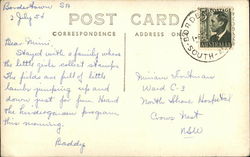 Bordertown SA
2 July 54
POST CARD
CORRESPONDENCE
ADDRESS ONLY
Dear Mimi,
Stayed with a family where
the little girls collect stamps.
The fields are full of little
lambs jumping up and
down just for fun. Heard
the kindergarten program
this morning.
Daddy
Miriam
Ward C-3
North Shore Hospital
Crows Nest
NSW
BORDER
SOUTH
AUSTRALIA